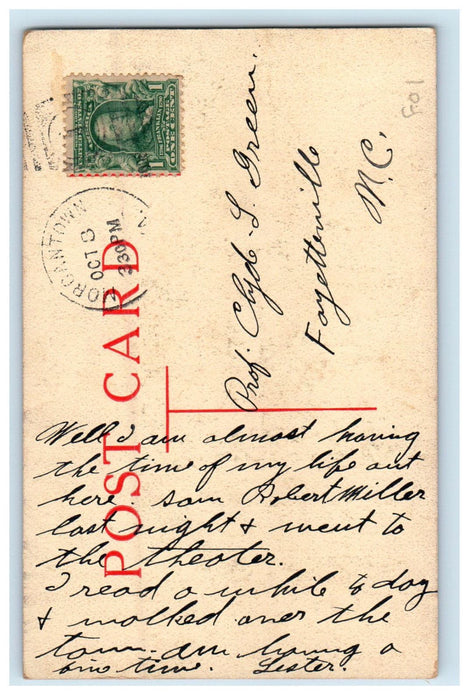 801
MORGANTOWN
OCT 8
230PM
N.
POST CARD
Prof. Clyde L. Green.
Fayetteville
N.C.
Well I am almost having
the time of my life out
here. saw Robert Miller
last night & went to
the theater.
I read a while to day
& walked over the
town. am having a
time. Lester.